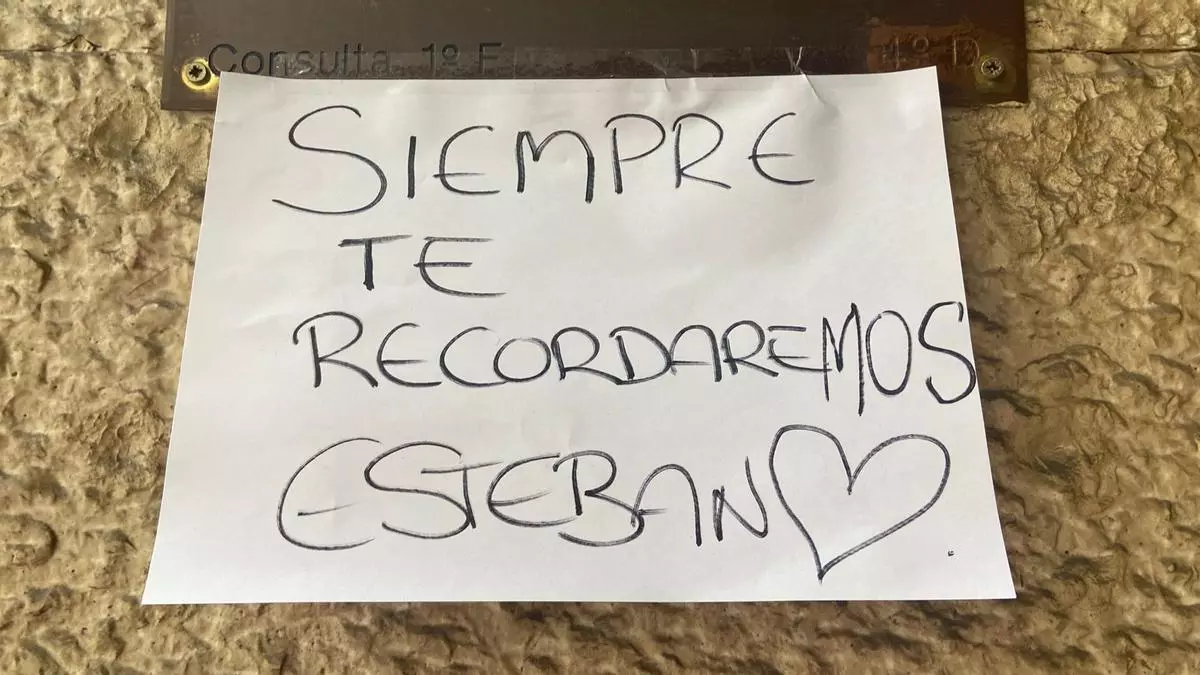 Consulta 1º F 1º D
SIEMPRE
TE
RECORDAREMOS
ESTEBAN